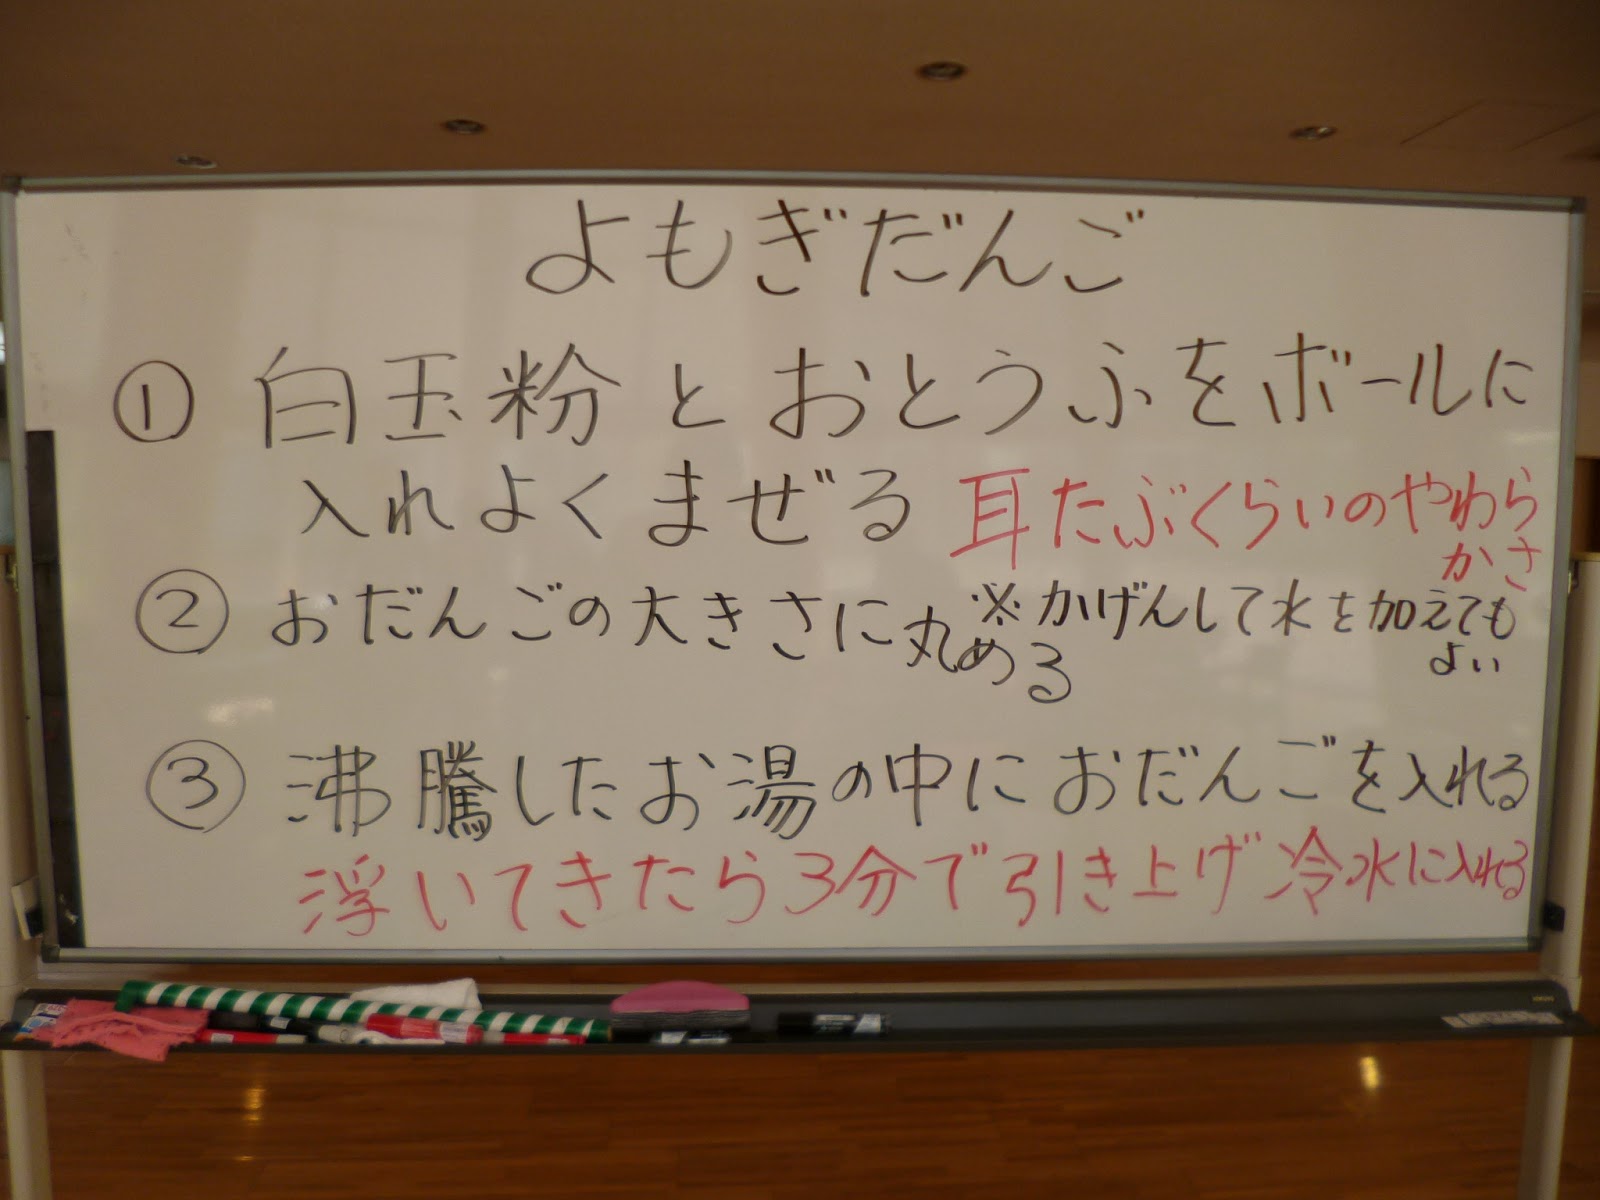 よもぎだんご
① 白玉粉とおとうふをボールに
入れよくまぜる 耳たぶくらいのやわら
かさ
② おだんごの大きさに丸める
※かげんして水を加えても
よい
③ 沸騰したお湯の中におだんごを入れる
浮いてきたら3分で引き上げ冷水に入れる